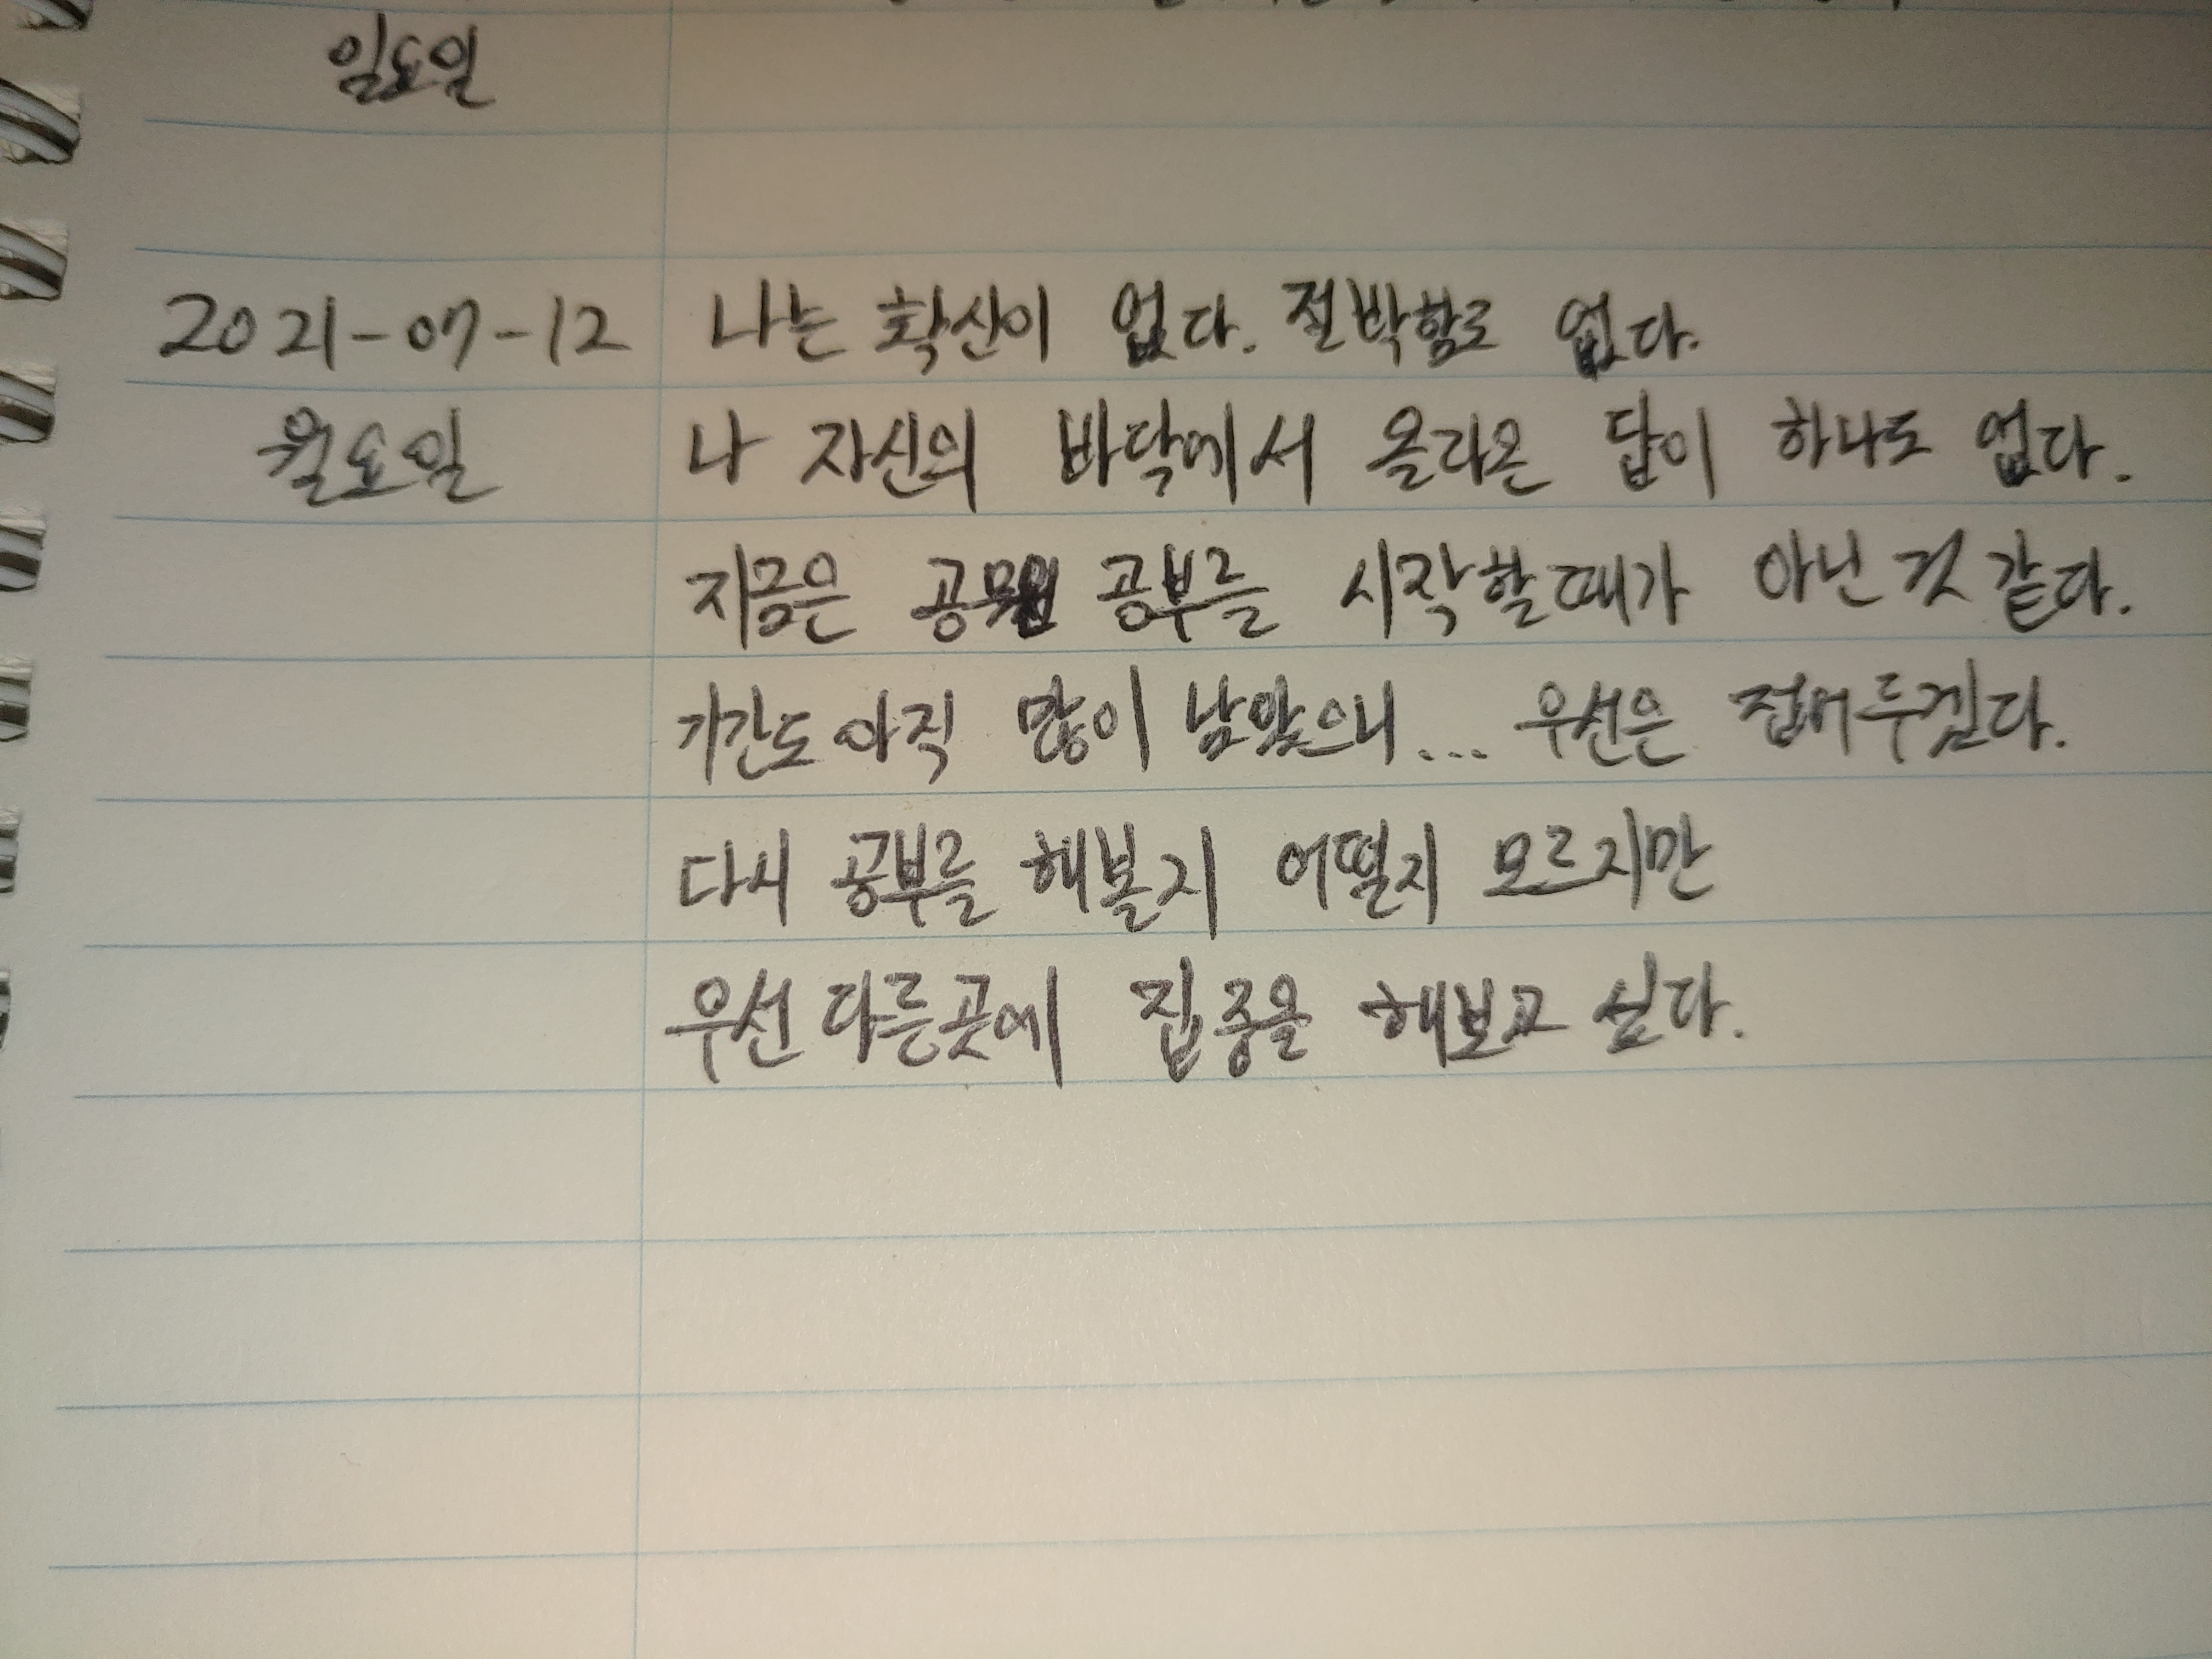 일요일
2021-07-12 나는 확신이 없다. 절박함도 없다.
월요일 나 자신의 바닥에서 올라온 답이 하나도 없다.
지금은 공무원 공부를 시작할때가 아닌 것 같다.
기간도 아직 많이 남았으니... 우선은 접어두겠다.
다시 공부를 해볼지 어떨지 모르지만
우선 다른곳에 집중을 해보고 싶다.